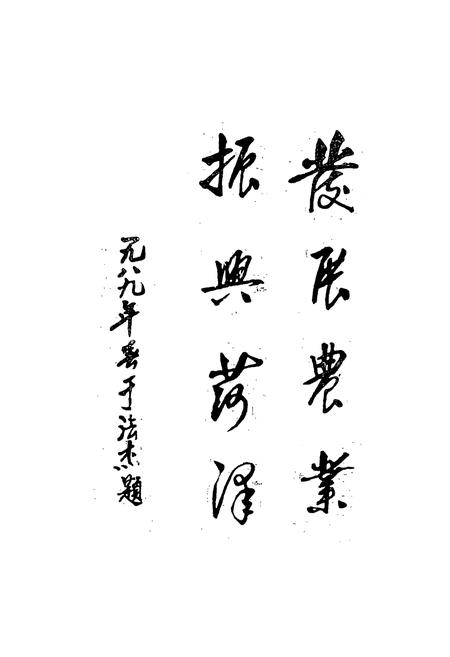 發展農業
振興菏泽
一九八九年春于法杰題